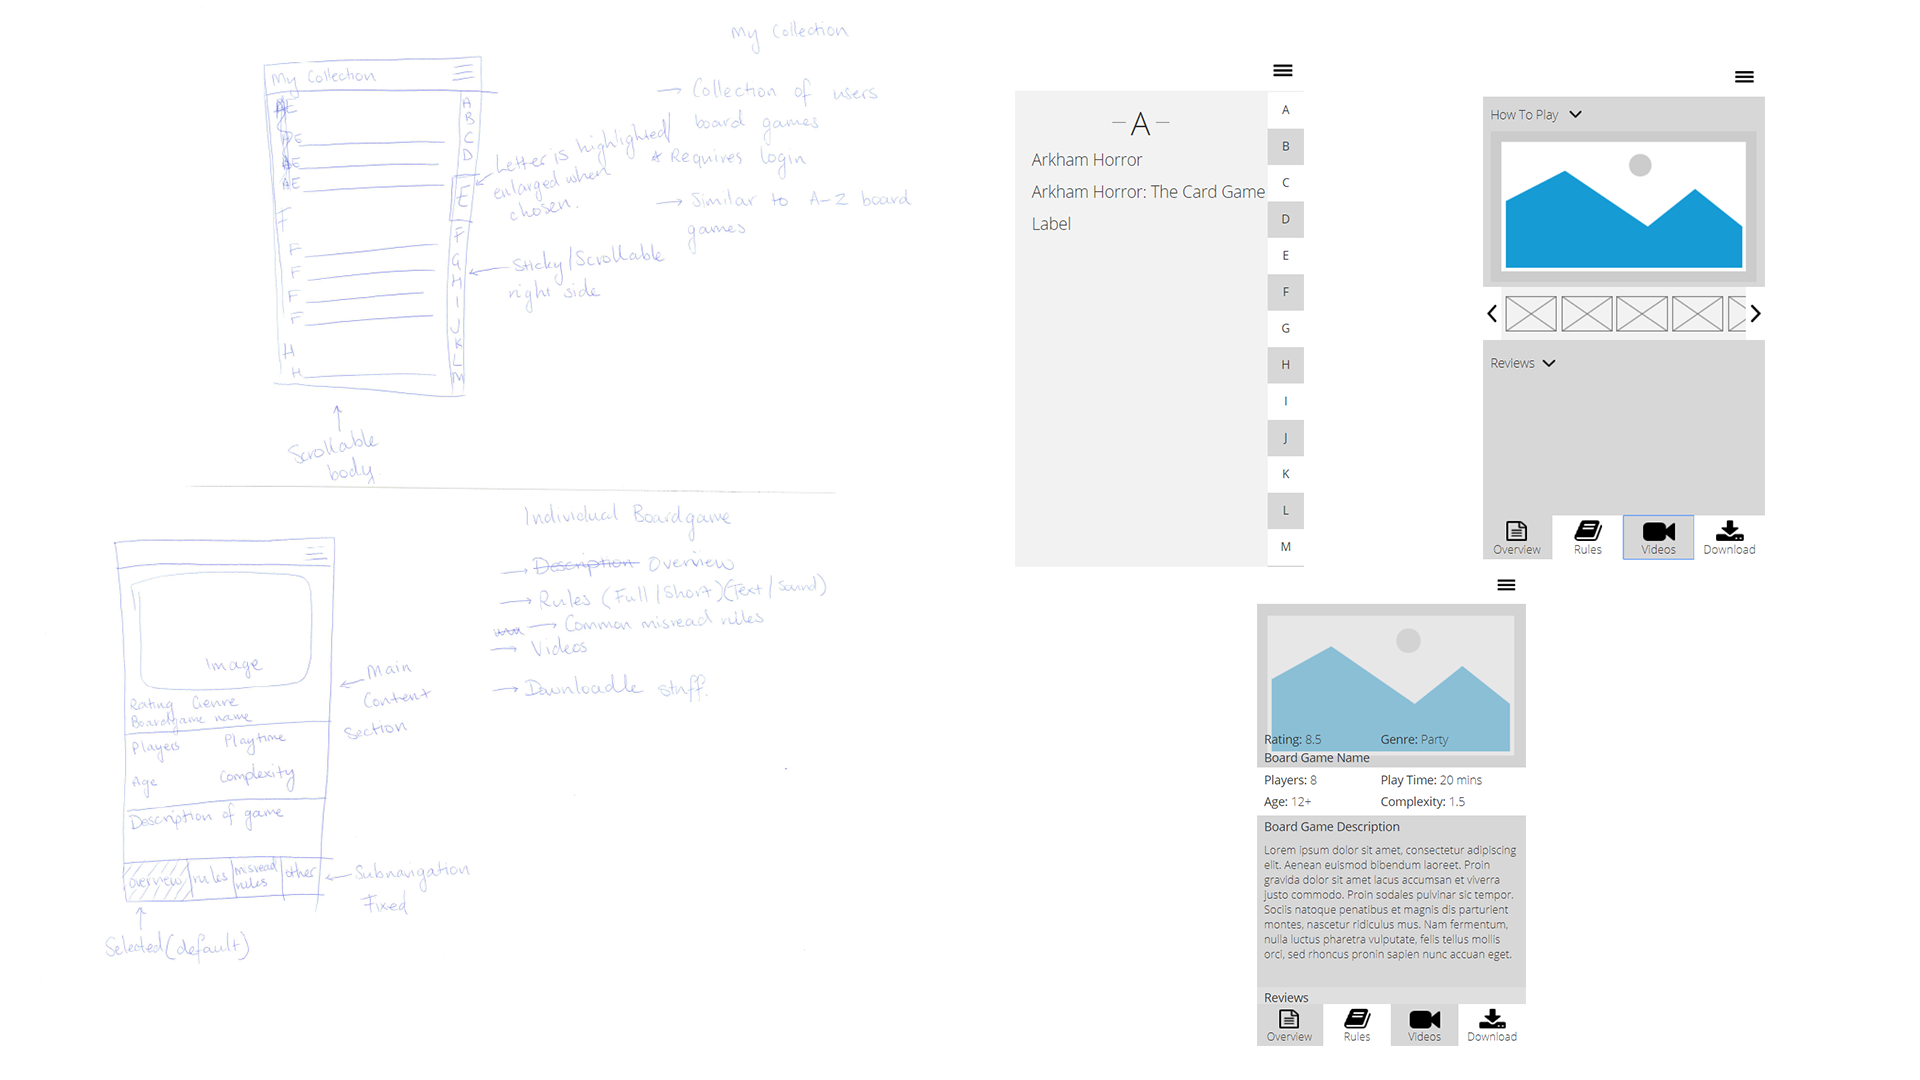 My Collection
My Collection
AE
AE
AE
AE
F
F
F
F
F
H
H
A
B
C
D
E
F
G
H
I
J
K
L
M
Letter is highlighted/
enlarged when
chosen.
Sticky/Scrollable
right side
→ Collection of users
board games
* Requires login
→ Similar to A-Z board
games
Scrollable
body.
Individual Boardgame
→ Description Overview
→ Rules (Full/Short)(Text/Sound)
→ Common misread rules
→ Videos
→ Downloadle stuff.
Image
Rating Genre
Boardgame name
Players Playtime
Age Complexity
Description of game
overview rules misread rules other
Main
Content
Section
Subnavigation
Fixed
Selected(default)
A
Arkham Horror
Arkham Horror: The Card Game
Label
A
B
C
D
E
F
G
H
I
J
K
L
M
How To Play
Reviews
Overview Rules Videos Download
Rating: 8.5 Genre: Party
Board Game Name
Players: 8 Play Time: 20 mins
Age: 12+ Complexity: 1.5
Board Game Description
Lorem ipsum dolor sit amet, consectetur adipiscing
elit. Aenean euismod bibendum laoreet. Proin
gravida dolor sit amet lacus accumsan et viverra
justo commodo. Proin sodales pulvinar sic tempor.
Sociis natoque penatibus et magnis dis parturient
montes, nascetur ridiculus mus. Nam fermentum,
nulla luctus pharetra vulputate, felis tellus mollis
orci, sed rhoncus pronin sapien nunc accuan eget.
Reviews
Overview Rules Videos Download